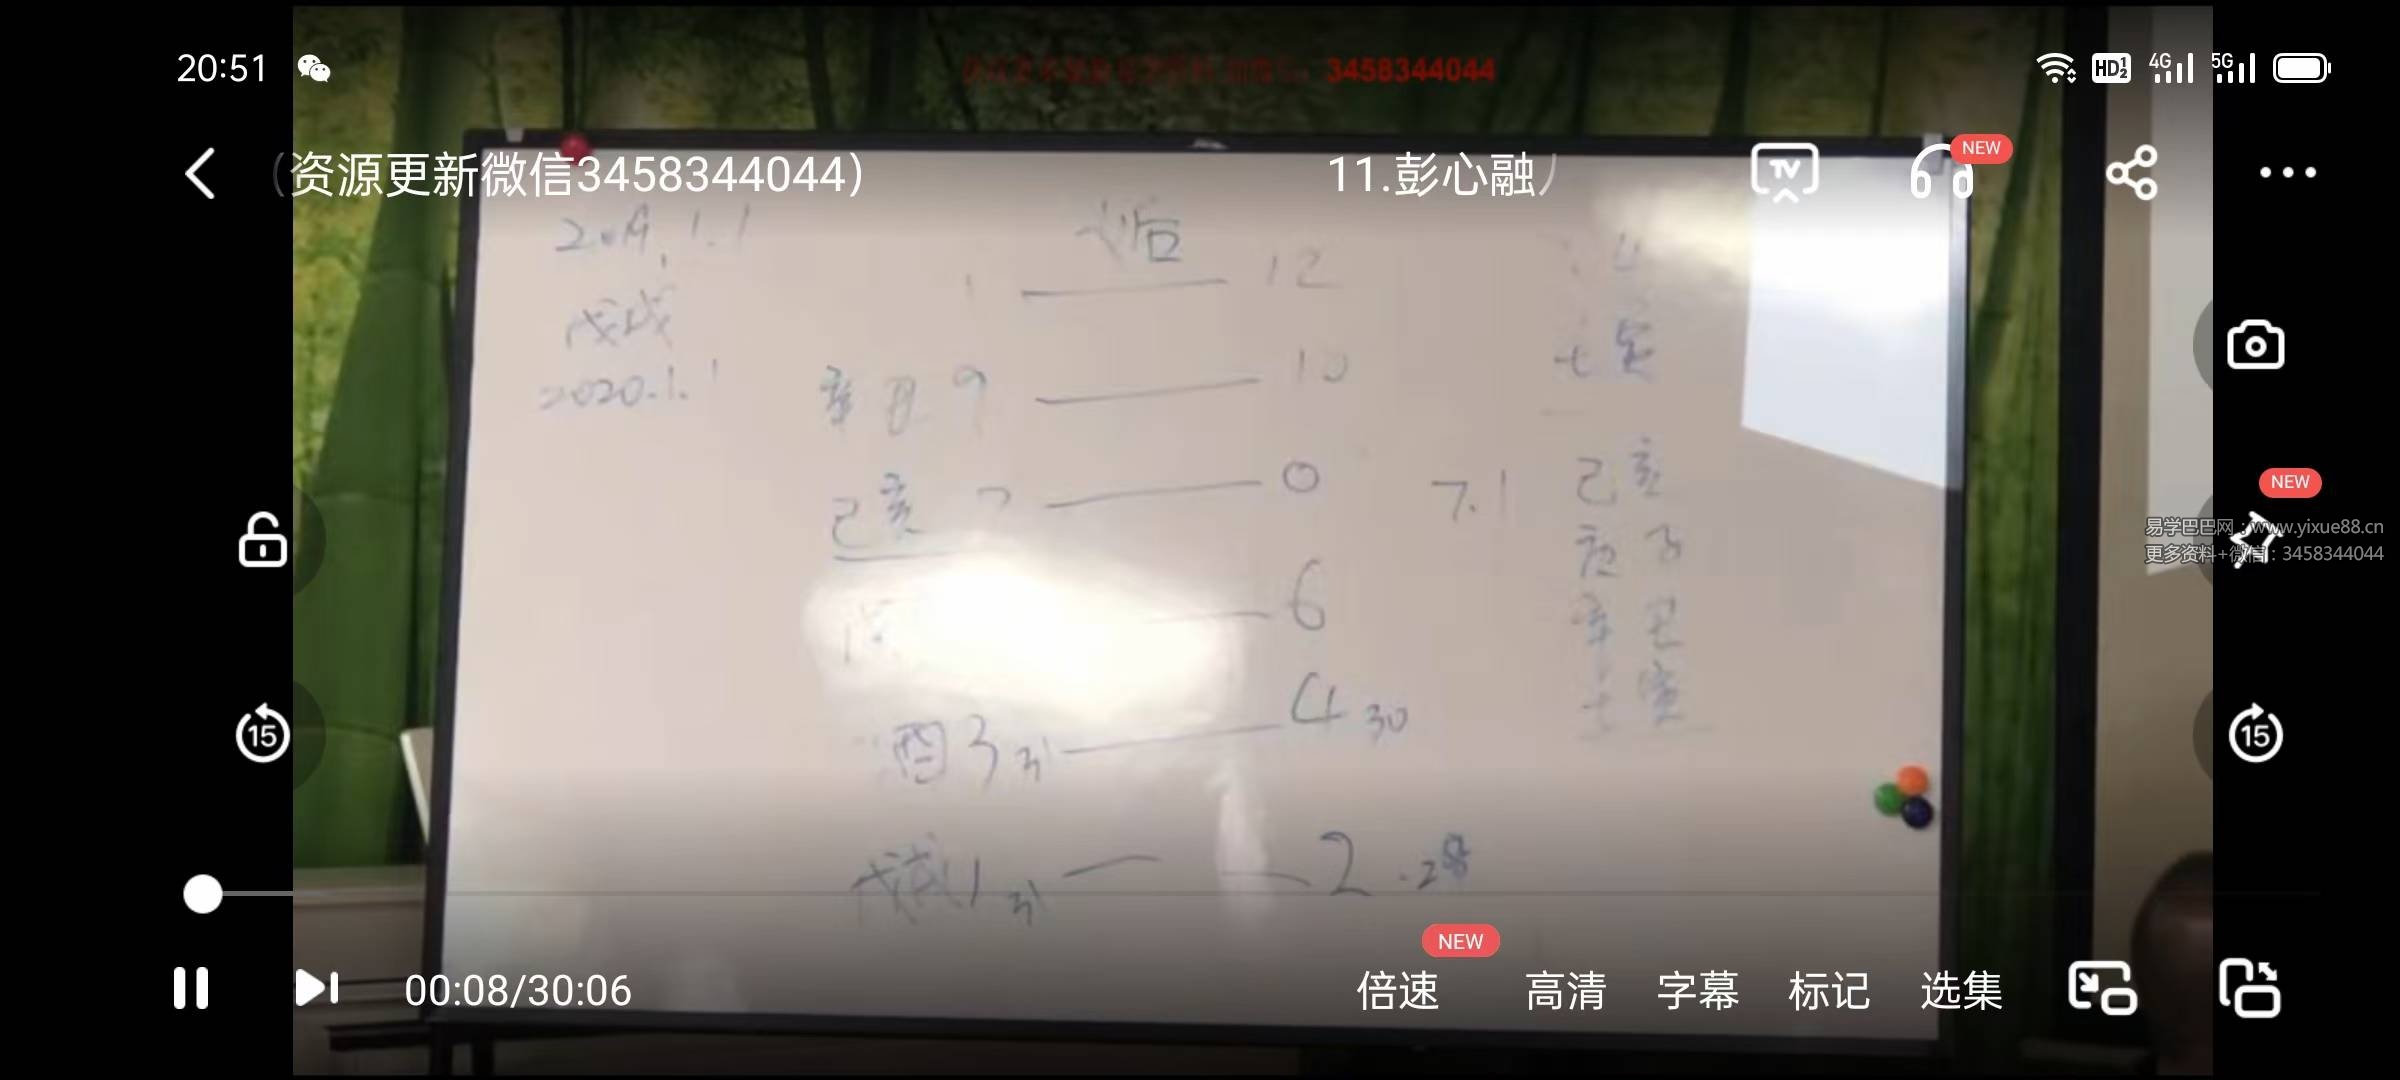 20:51
HD 1 2 4G 5G
3458344044
（资源更新微信3458344044）
11.彭心融
NEW
2019.1.1
姤
12
戊戌
2020.1.1
辛丑 9
10
己亥 7
0
7.1
己亥
庚子
辛丑
壬寅
6
酉 3 31
4 30
戊戌 1 31
2.28
NEW
易学巴巴网：www.yixue88.cn
更多资料+微信：3458344044
15
15
00:08/30:06
NEW
倍速
高清
字幕
标记
选集